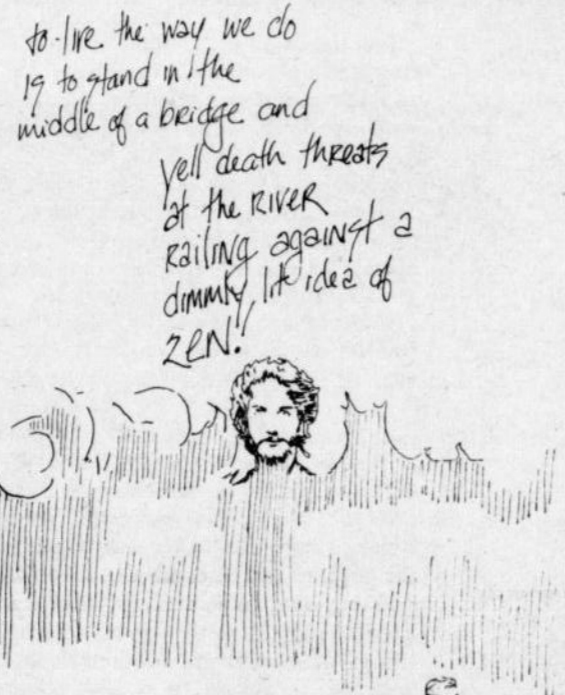 to live the way we do
is to stand in the
middle of a bridge and
yell death threats
at the RIVER
RaiLiNG against a
dimmly lit idea of
ZEN!